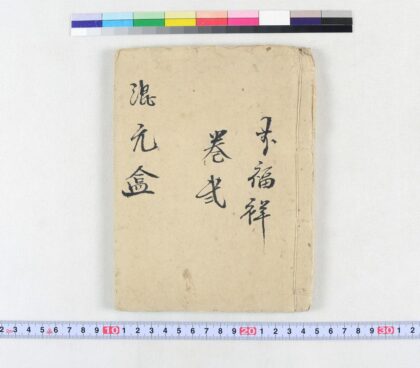 福祥
卷弍
混元盒
2 3 4 5 6 7 8 9 10 1 2 3 4 5 6 7 8 9 20 1 2 3 4 5 6 7 8 9 30 1 2 3